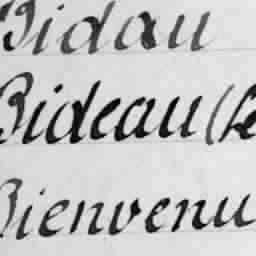 Bidau
Bideau (Le
Bienvenu